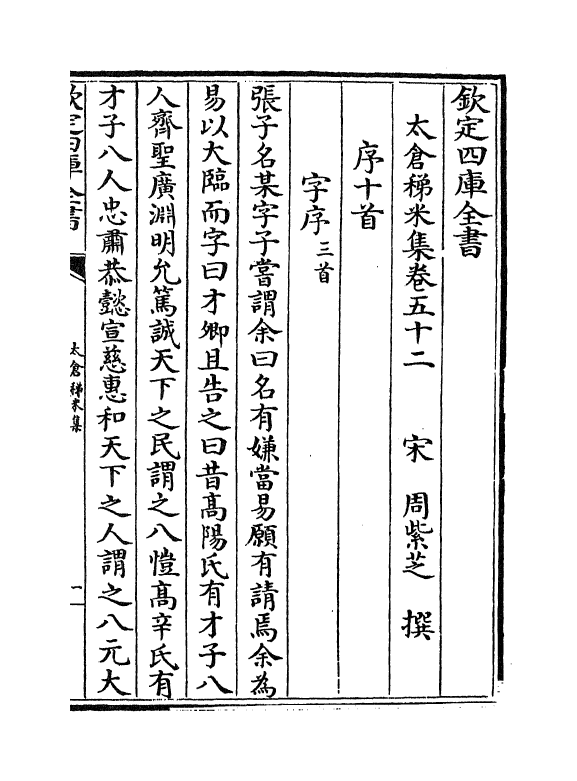 欽定四庫全書
太倉稊米集卷五十二 宋 周紫芝 撰
序十首
字序三首
張子名某字子嘗謂余曰名有嫌當易願有請焉余為
易以大臨而字曰才卿且告之曰昔髙陽氏有才子八
人齊聖廣淵明允篤誠天下之民謂之八愷髙辛氏有
才子八人忠肅恭懿宣慈惠和天下之人謂之八元大
欽定四庫全書
太倉稊米集
一